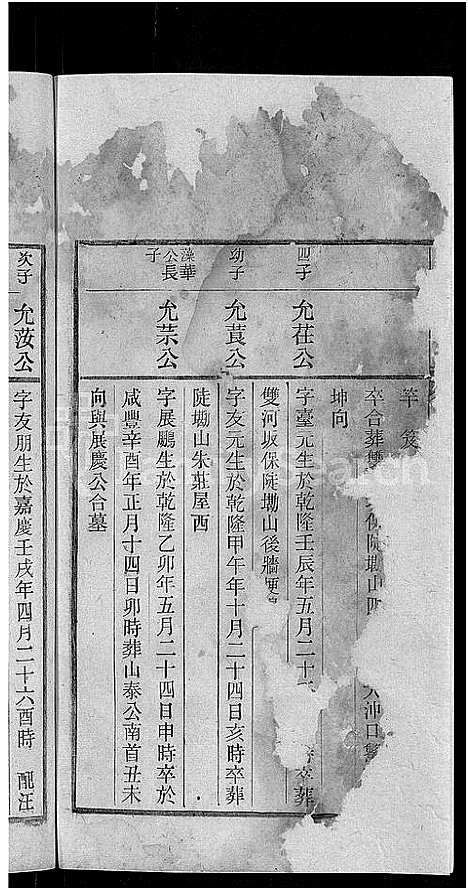 卒合葬雙 保陡塝山四 沖口
坤向
四子
允茌公
字臺元生於乾隆壬辰年五月二十 卒葬
雙河坂保陡塝山後牆
幼子
允莨公
字友元生於乾隆甲午年十月二十四日亥時卒葬
陡塝山朱莊屋西
藻華公長子
允芸公
字展鵬生於乾隆乙卯年五月二十四日申時卒於
咸豐辛酉年正月十四日卯時葬山泰公南首丑未
向與展慶公合墓
次子
允汝公
字友朋生於嘉慶壬戌年四月二十六酉時 配汪